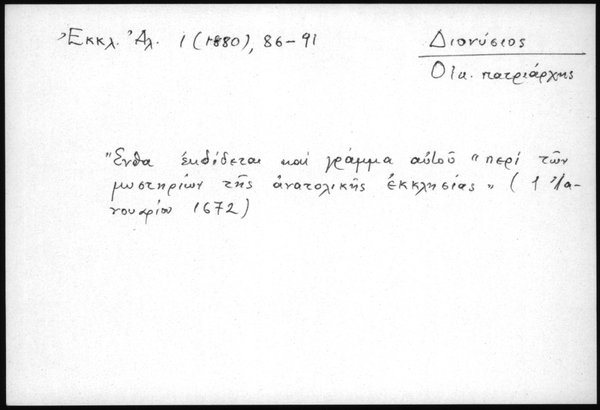 Ἐκκλ. Ἀλ. 1 (1880), 86-91
Διονύσιος
Οἰκ. πατριάρχης
"Ενθα ἐκδίδεται καί γράμμα αὐτοῦ "περί τῶν
μυστηρίων τῆς ἀνατολικῆς ἐκκλησίας" (1 Ἰα-
νουαρίου 1672)